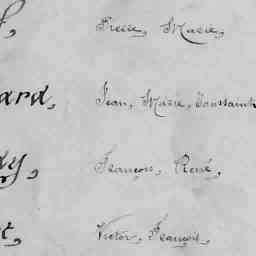 Marie,
ard, Jean, Marie, Toussaint
ay, François, René,
Victor, François,